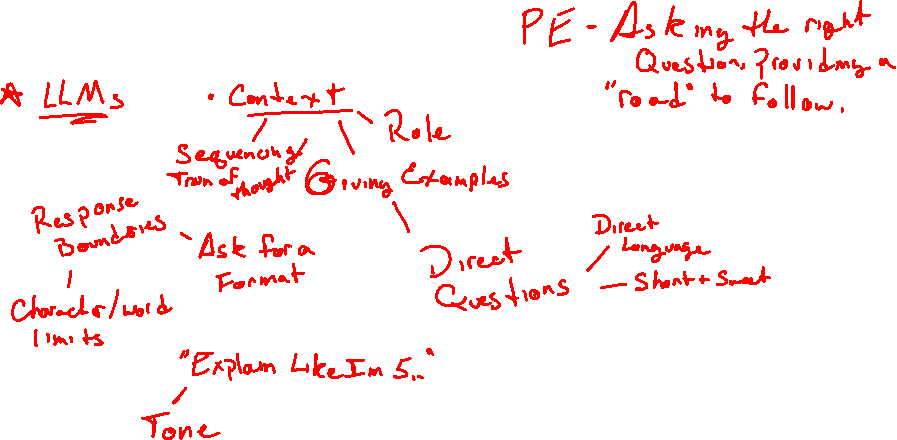 PE - Asking the right
Question. Providing a
"road" to follow.
* LLMs
• Context
Role
Sequencing
Train of thought
Giving Examples
Response
Boundaries
Ask for a
Format
Character/word
limits
Direct
Questions
Direct
Language
Short + Sweet
"Explain Like Im 5.."
Tone